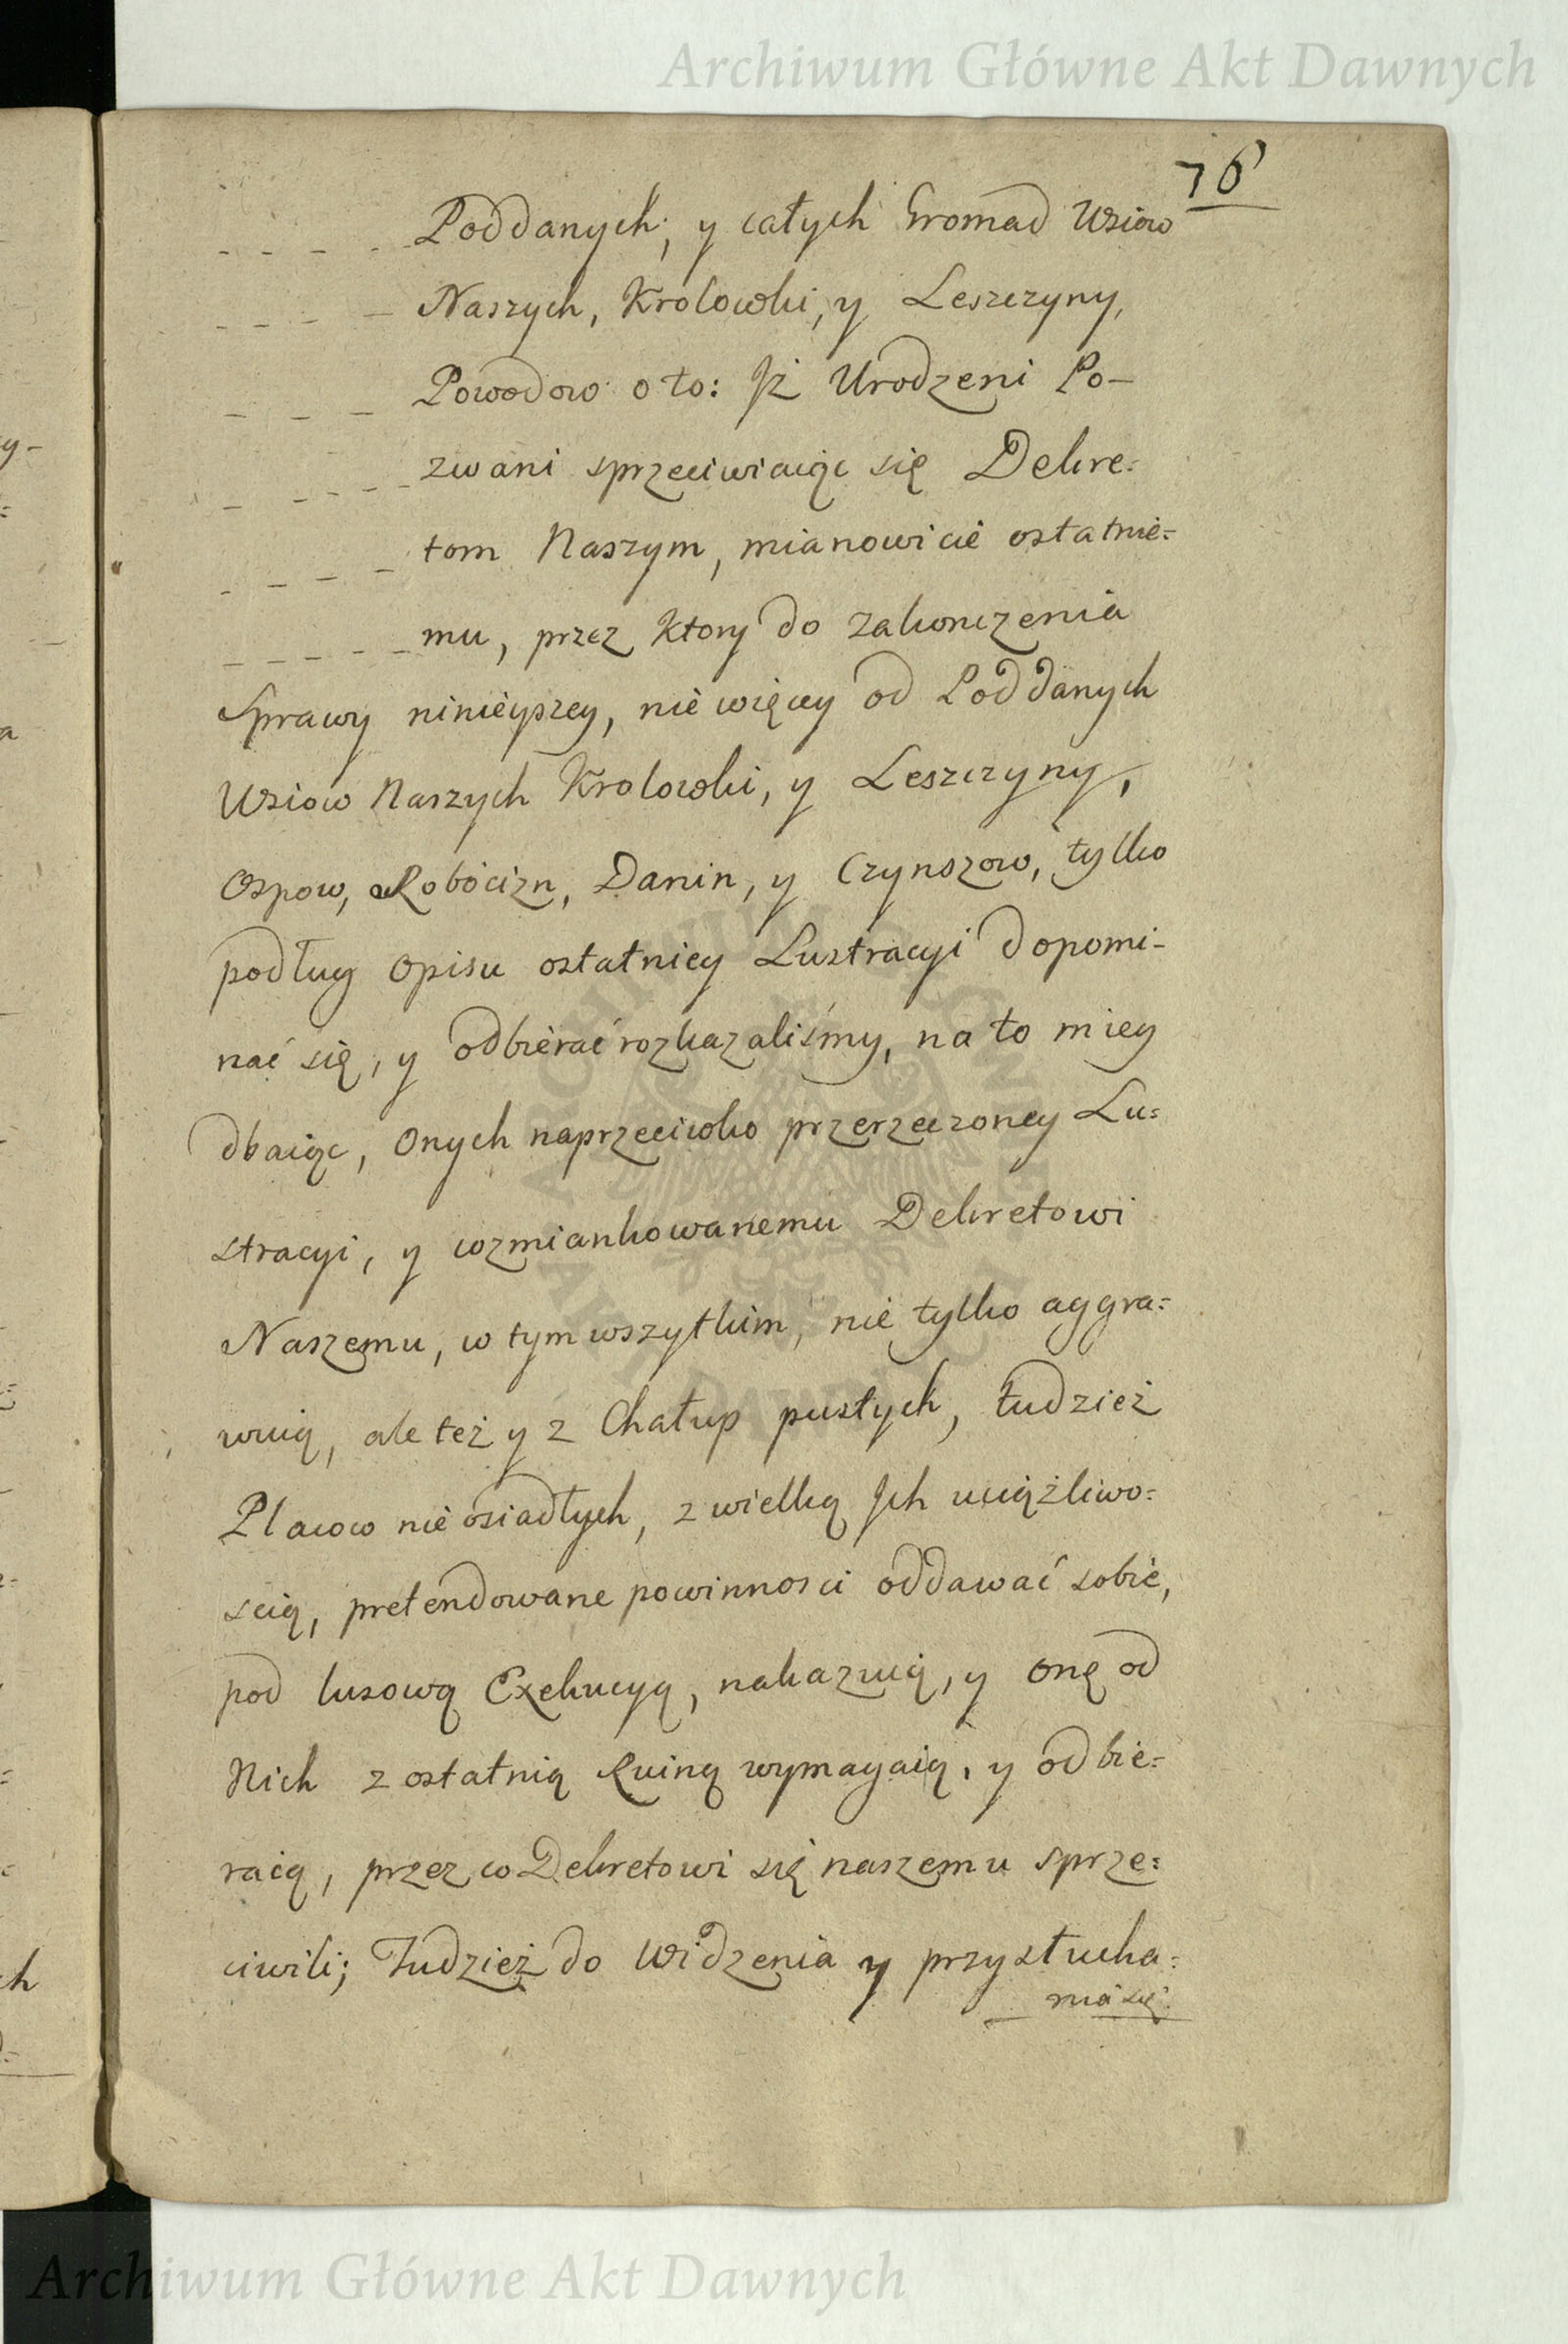 Archiwum Główne Akt Dawnych
76
Poddanych, y całych Gromad Wsiow
Naszych, Krolowki, y Leszczyny,
Powodow o to: Jż Urodzeni Po-
zwani sprzeciwiaiąc się Dekre=
tom Naszym, mianowicie ostatnie=
mu, przez ktory do zakonczenia
Sprawy ninieyszey, nie więcey od Poddanych
Wsiow Naszych Krolowki, y Leszczyny,
Ospow, Robocizn, Danin, y Czynszow, tylko
podług opisu ostatniey Lustracyi dopomi-
nać się, y odbierać rozkazaliśmy, na to miey
dbaiąc, Onych naprzeciwko przerzeczoney Lu=
stracyi, y wzmiankowanemu Dekretowi
Naszemu, w tym wszytkim, nie tylko aggra=
wuią, ale też y z Chałup pustych, tudzież
Placow nie osiadłych, z wielką Jch uciążliwo=
scią, pretendowane powinnosci oddawać sobie,
pod lusową Exekucyą, nakazuią, y onę od
Nich z ostatnią Ruiną wymagaią, y odbie=
raią, przez co Dekretowi się naszemu sprze=
ciwili; Tudzież do widzenia y przysłucha=
nia się
Archiwum Główne Akt Dawnych